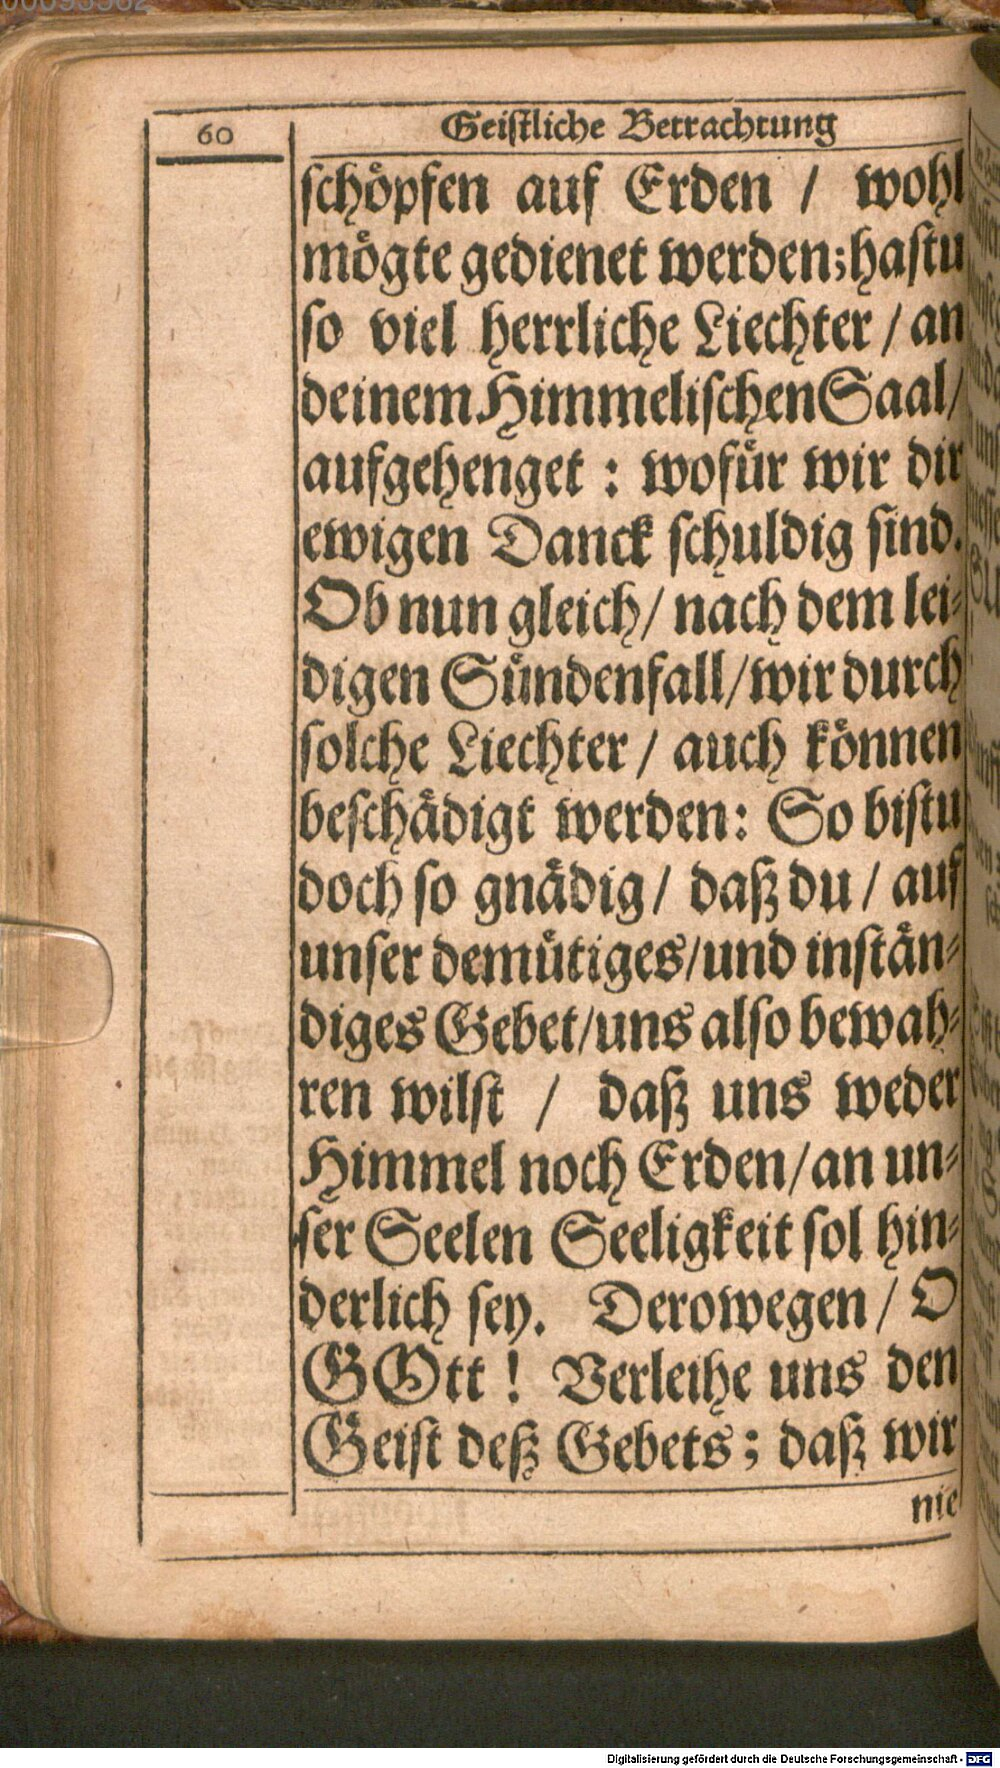 60
Geistliche Betrachtung
schöpfen auf Erden / wohl
mögte gedienet werden; hastu
so viel herrliche Liechter / an
deinem Himmelischen Saal /
aufgehenget : wofür wir dir
ewigen Danck schuldig sind.
Ob nun gleich / nach dem lei-
digen Sündenfall / wir durch
solche Liechter / auch können
beschädigt werden: So bistu
doch so gnädig / daß du / auf
unser demütiges / und instän-
diges Gebet / uns also bewah-
ren wilst / daß uns weder
Himmel noch Erden / an un-
ser Seelen Seeligkeit sol hin-
derlich sey. Derowegen / O
GOtt ! Verleihe uns den
Geist deß Gebets ; daß wir
nie
Digitalisierung gefördert durch die Deutsche Forschungsgemeinschaft - DFG